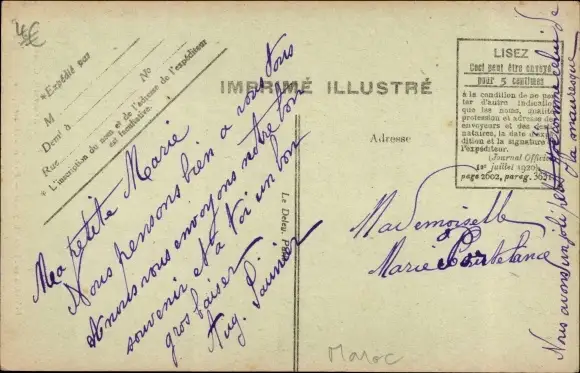 4€
* Expédié par
M
Demt à
Rue N°
* L'inscription du nom et de l'adresse de l'expéditeur
est facultative.
IMPRIMÉ ILLUSTRÉ
Adresse
LISEZ
Ceci peut être envoyé
pour 5 centimes
à la condition de ne por-
ter d'autre indication
que les noms, qualité
profession et adresse des
envoyeurs et des desti-
nataires, la date d'expé-
dition et la signature
l'expéditeur.
(Journal Officiel
1er juillet 1920)
page 2602, parag. 362
Ma petite Marie
Nous pensons bien a vous tous
et nous vous envoyons notre bon
souvenir et à toi un bon
gros baiser
Aug. Saunier
Le Deley.
Mademoiselle
Marie
Nous avons un joli comme celui de
la mauresque
Maroc